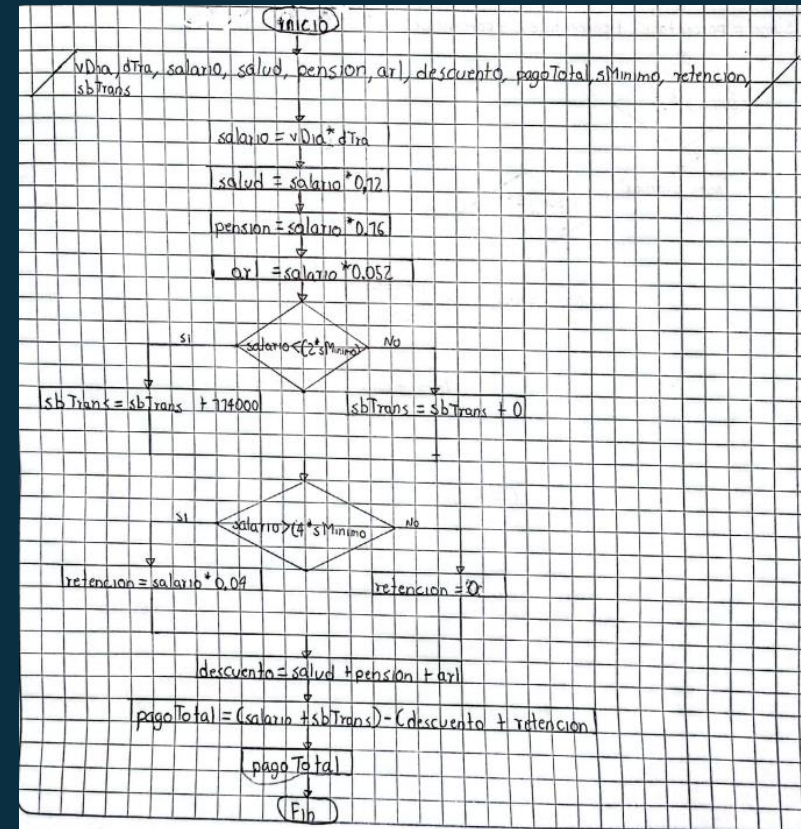 inicio
vDia, dTra, salario, salud, pension, arl, descuento, pagoTotal, sMinimo, retencion,
sbTrans
salario = vDia * dTra
salud = salario * 0,12
pension = salario * 0.16
arl = salario * 0.052
salario < (2*sMinimo)
Si
No
sbTrans = sbTrans + 114000
sbTrans = sbTrans + 0
salario > (4*sMinimo
Si
No
retencion = salario * 0.04
retencion = 0
descuento = salud + pension + arl
pagoTotal = (salario + sbTrans) - (descuento + retencion
pagoTotal
Fin